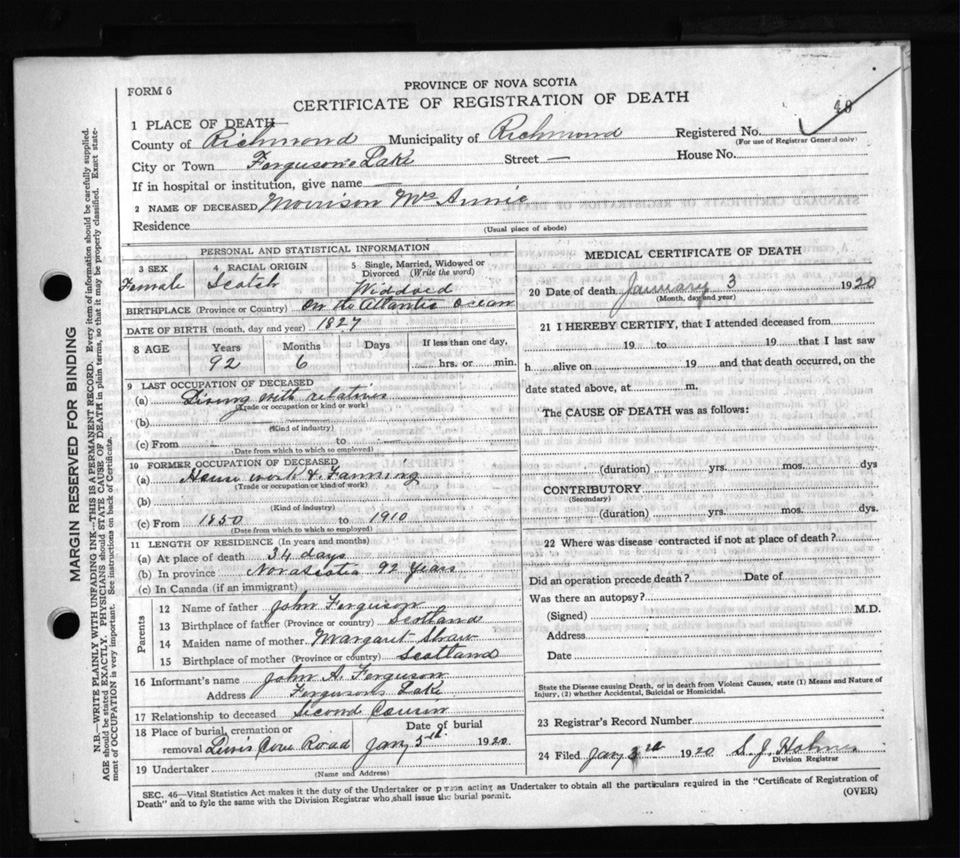 FORM 6
PROVINCE OF NOVA SCOTIA
CERTIFICATE OF REGISTRATION OF DEATH
1 PLACE OF DEATH
County of Richmond Municipality of Richmond Registered No.
(For use of Registrar General only)
City or Town Ferguson's Lake Street — House No.
If in hospital or institution, give name —
2 NAME OF DECEASED Morrison Mrs Annie
Residence
(Usual place of abode)
PERSONAL AND STATISTICAL INFORMATION
3 SEX Female
4 RACIAL ORIGIN Scotch
5 Single, Married, Widowed or Divorced (Write the word) Widdoed
BIRTHPLACE (Province or Country) On the Atlantic Ocean
DATE OF BIRTH (month, day and year) 1827
8 AGE Years Months Days If less than one day,
92 6 hrs. or min.
9 LAST OCCUPATION OF DECEASED
(a) Living with relatives
(Trade or occupation or kind or work)
(b)
(Kind of industry)
(c) From to
(Date from which to which so employed)
10 FORMER OCCUPATION OF DECEASED
(a) House work & Farming
(Trade or occupation or kind of work)
(b)
(Kind of industry)
(c) From 1850 to 1910
(Date from which to which so employed)
11 LENGTH OF RESIDENCE (In years and months)
(a) At place of death 34 days
(b) In province Novascotia 92 Years
(c) In Canada (if an immigrant)
Parents
12 Name of father John Ferguson
13 Birthplace of father (Province or country) Scotland
14 Maiden name of mother Margaret Shaw
15 Birthplace of mother (Province or country) Scotland
16 Informant's name John A. Ferguson
Address Fergusons Lake
17 Relationship to deceased Second Cousin
18 Place of burial, cremation or removal Lewis Cove Road
Date of burial Jany 5th 1920
19 Undertaker
(Name and Address)
MEDICAL CERTIFICATE OF DEATH
20 Date of death January 3 1920
(Month, day and year)
21 I HEREBY CERTIFY, that I attended deceased from
19 to 19 that I last saw
h alive on 19 and that death occurred, on the
date stated above, at m.
The CAUSE OF DEATH was as follows:
(duration) yrs. mos. dys
CONTRIBUTORY
(Secondary)
(duration) yrs. mos. dys.
22 Where was disease contracted if not at place of death?
Did an operation precede death? Date of
Was there an autopsy?
(Signed) M.D.
Address
Date
State the Disease causing Death, or in death from Violent Causes, state (1) Means and Nature of
Injury, (2) whether Accidental, Suicidal or Homicidal.
23 Registrar's Record Number
24 Filed Jany 1920 S. J. Holmes
Division Registrar
SEC. 46—Vital Statistics Act makes it the duty of the Undertaker or person acting as Undertaker to obtain all the particulars required in the "Certificate of Registration of
Death" and to fyle the same with the Division Registrar who shall issue the burial permit.
(OVER)
MARGIN RESERVED FOR BINDING
N.B.—WRITE PLAINLY WITH UNFADING INK—THIS IS A PERMANENT RECORD. Every item of information should be carefully supplied.
AGE should be stated EXACTLY. PHYSICIANS should STATE CAUSE OF DEATH in plain terms, so that it may be properly classified. Exact state-
ment of OCCUPATION is very important. See instructions on back of Certificate.